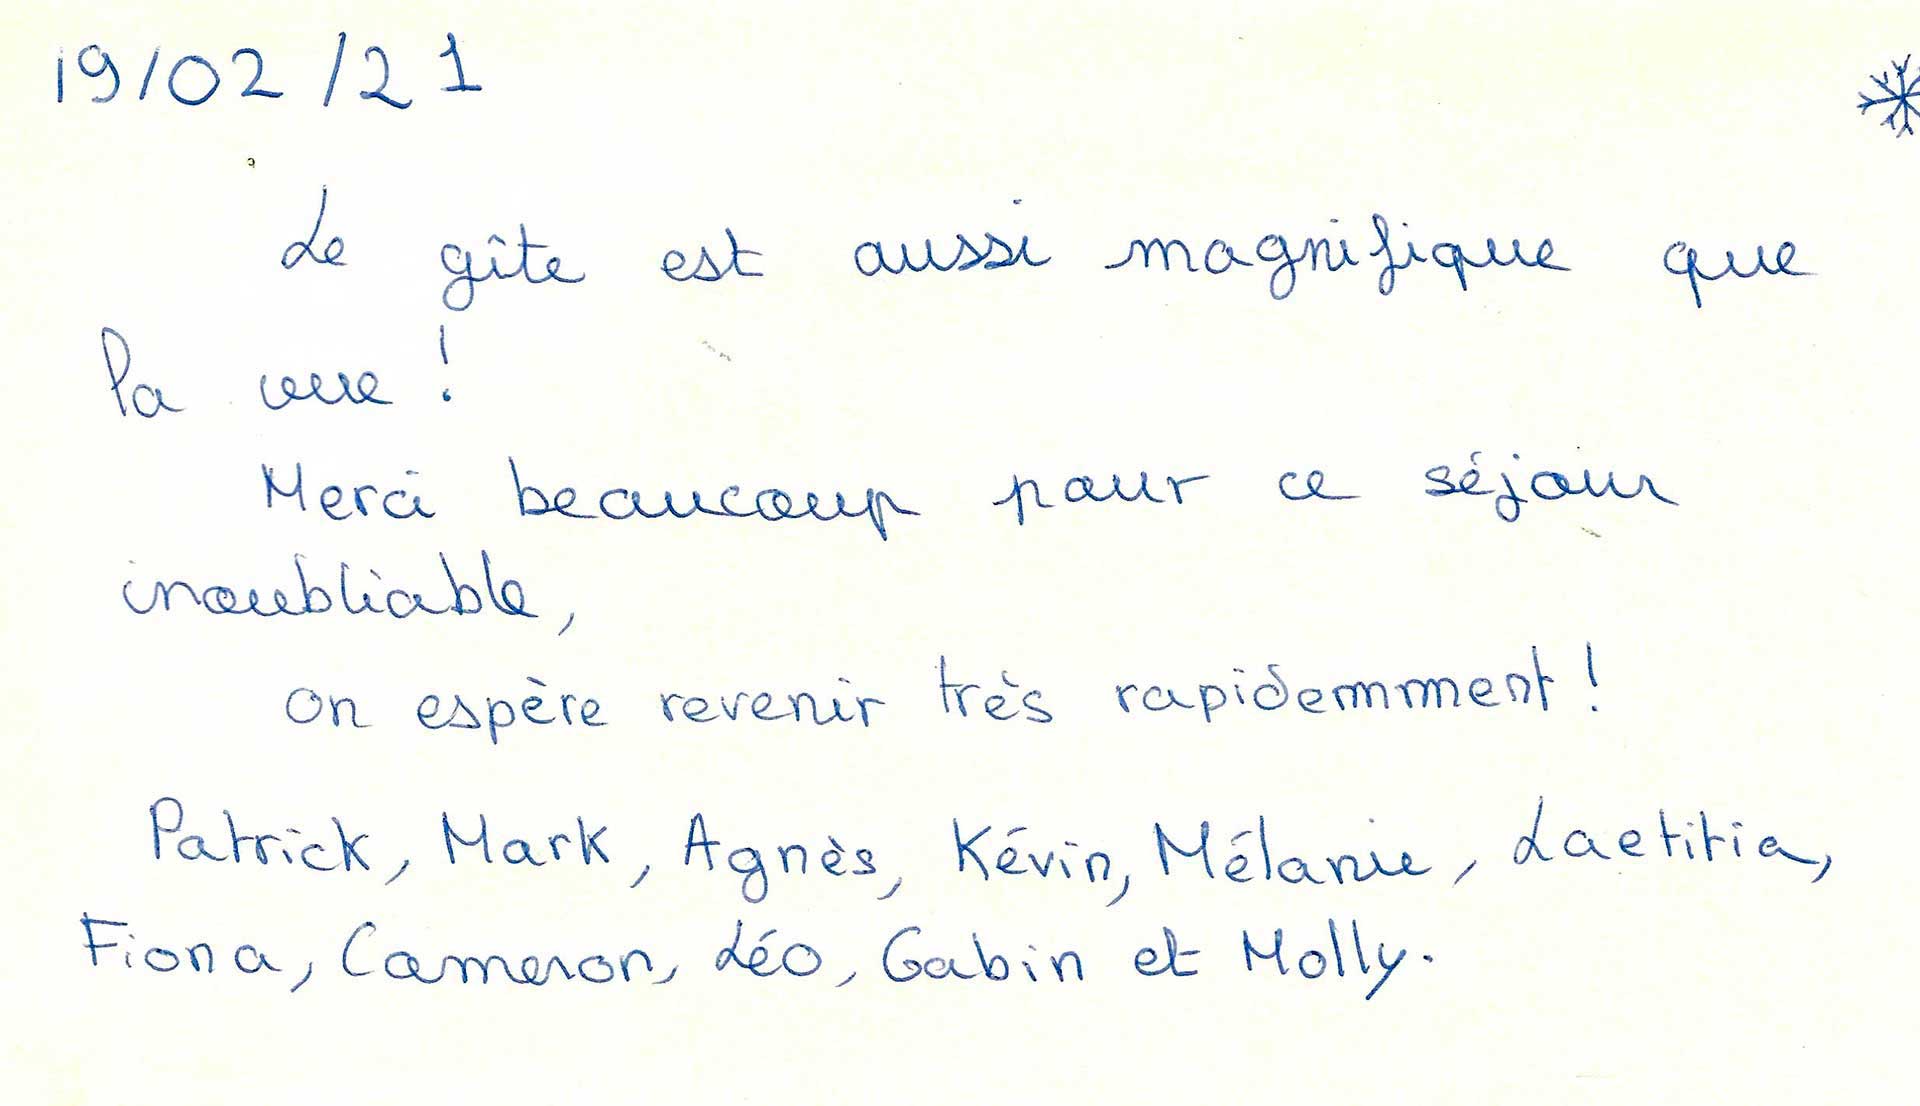 19/02/21
Le gîte est aussi magnifique que
la vue !
Merci beaucoup pour ce séjour
inoubliable,
on espère revenir très rapidemment !
Patrick, Mark, Agnès, Kévin, Mélanie, Laetitia,
Fiona, Cameron, Léo, Gabin et Molly.